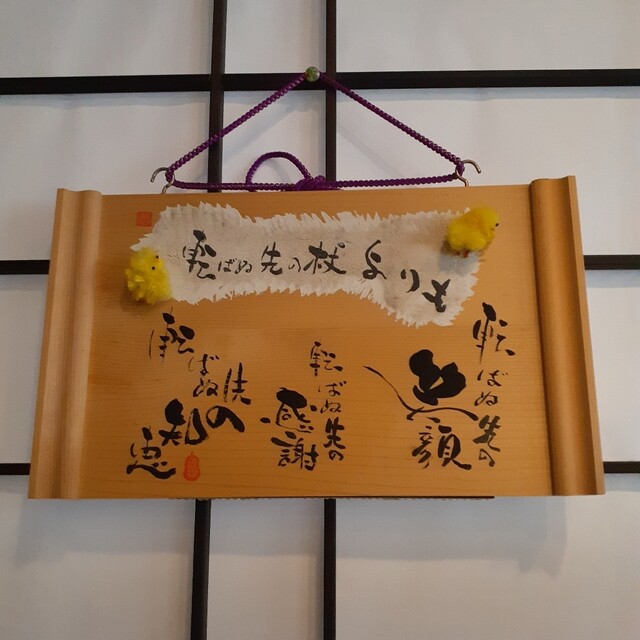 転ばぬ先の杖よりも
転ばぬ
先の
笑
顔
転ばぬ先の
感謝
転ばぬ
先の
知恵